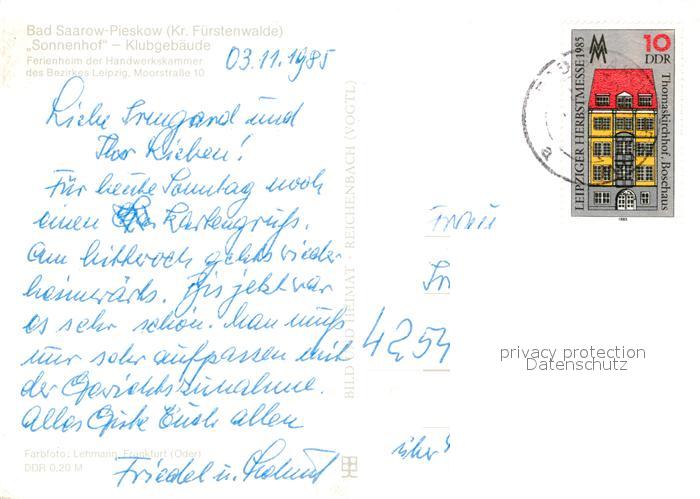 Bad Saarow-Pieskow (Kr. Fürstenwalde)
„Sonnenhof" – Klubgebäude
Ferienheim der Handwerkskammer
des Bezirkes Leipzig, Moorstraße 10
03.11.1985
Liebe Irmgard und
Ihr Lieben!
Für heute Sonntag noch
einen Kartengruß.
Am Mittwoch gehts wieder
heimwärts. Bis jetzt war
es sehr schön. Man muß
nur sehr aufpassen mit
der Gewichtszunahme.
Alles Gute Euch allen
Friedel u. Helmut
Farbfoto: Lehmann, Frankfurt (Oder)
DDR 0,20 M
BILD UND HEIMAT · REICHENBACH (VOGTL)
LEIPZIGER HERBSTMESSE 1985
10
DDR
Thomaskirchhof, Boschaus
1985
Frau
4254
privacy protection
Datenschutz